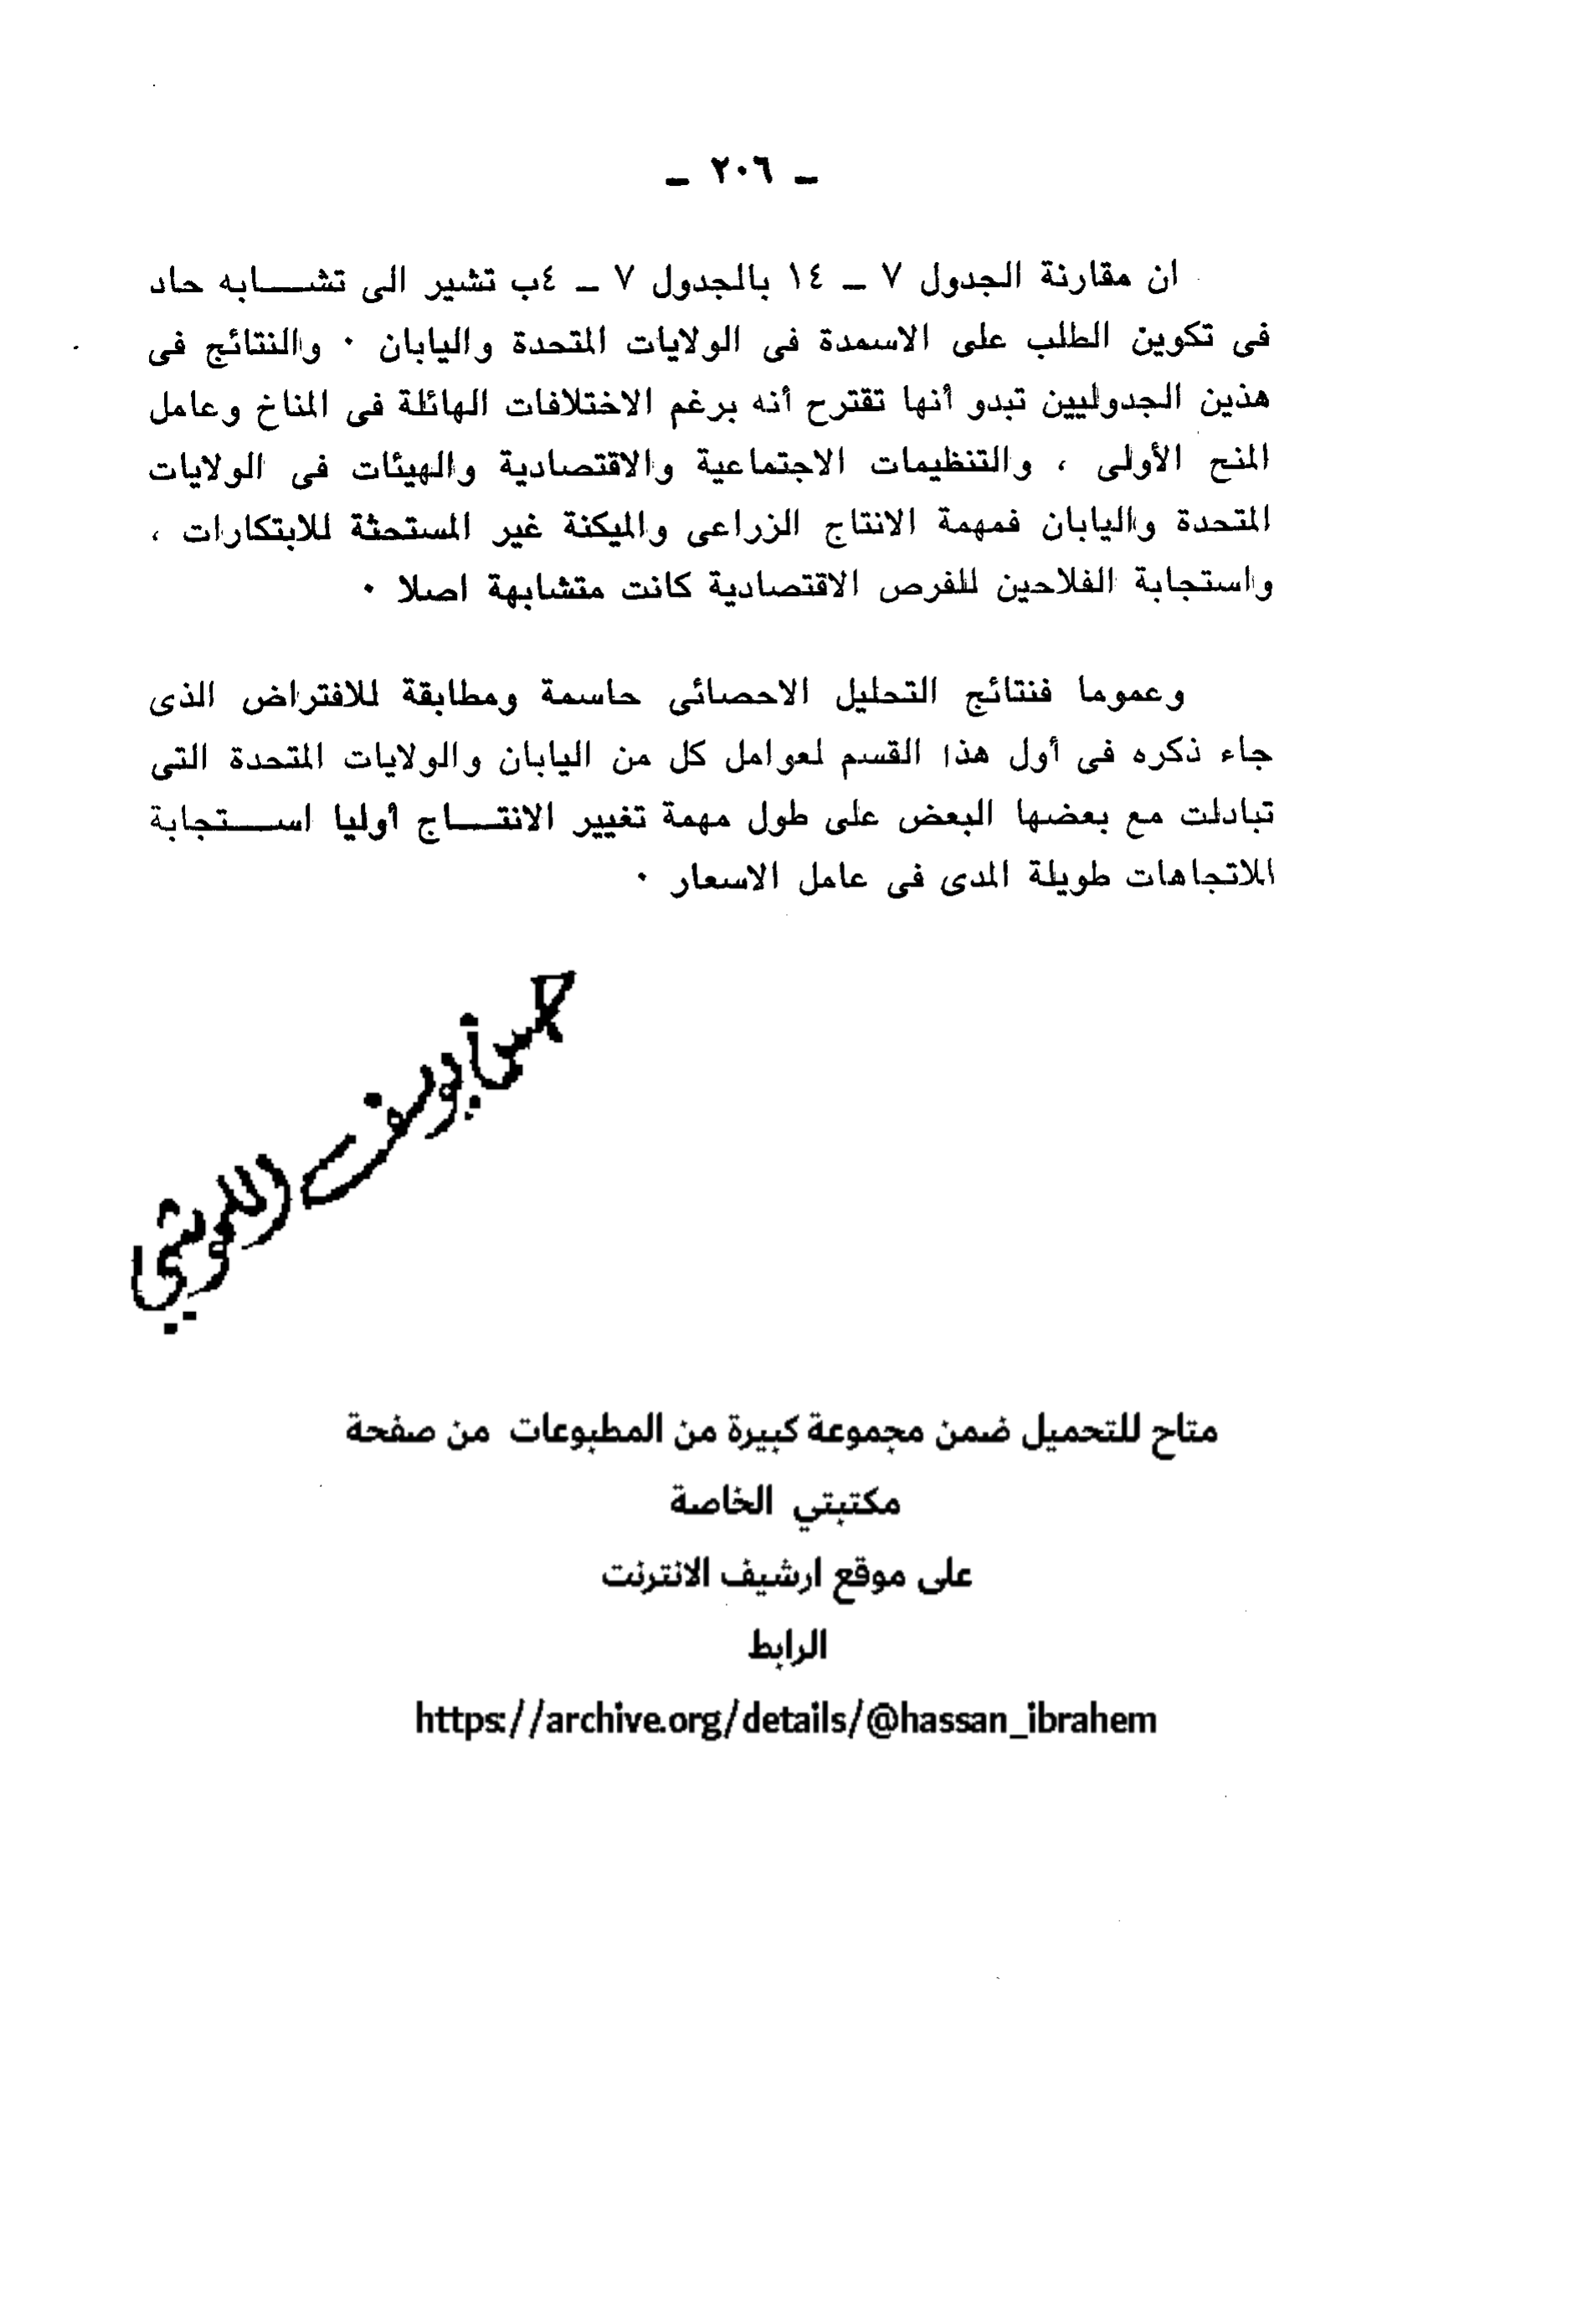 ـ ٢٠٦ ـ
ان مقارنة الجدول ٧ ـ ١٤ بالجدول ٧ ـ ٤ب تشير الى تشـــابه حاد
فى تكوين الطلب على الاسمدة فى الولايات المتحدة واليابان ٠ والنتائج فى
هذين الجدوليين تبدو أنها تقترح أنه برغم الاختلافات الهائلة فى المناخ وعامل
المنح الأولى ، والتنظيمات الاجتماعية والاقتصادية والهيئات فى الولايات
المتحدة واليابان فمهمة الانتاج الزراعى والميكنة غير المستحثة للابتكارات ،
واستجابة الفلاحين للفرص الاقتصادية كانت متشابهة اصلا ٠
وعموما فنتائج التحليل الاحصائى حاسمة ومطابقة للافتراض الذى
جاء ذكره فى أول هذا القسم لعوامل كل من اليابان والولايات المتحدة التى
تبادلت مع بعضها البعض على طول مهمة تغيير الانتـــاج أوليا اســـتجابة
للاتجاهات طويلة المدى فى عامل الاسعار ٠
متاح للتحميل ضمن مجموعة كبيرة من المطبوعات من صفحة
مكتبتي الخاصة
على موقع ارشيف الانترنت
الرابط
https://archive.org/details/@hassan_ibrahem